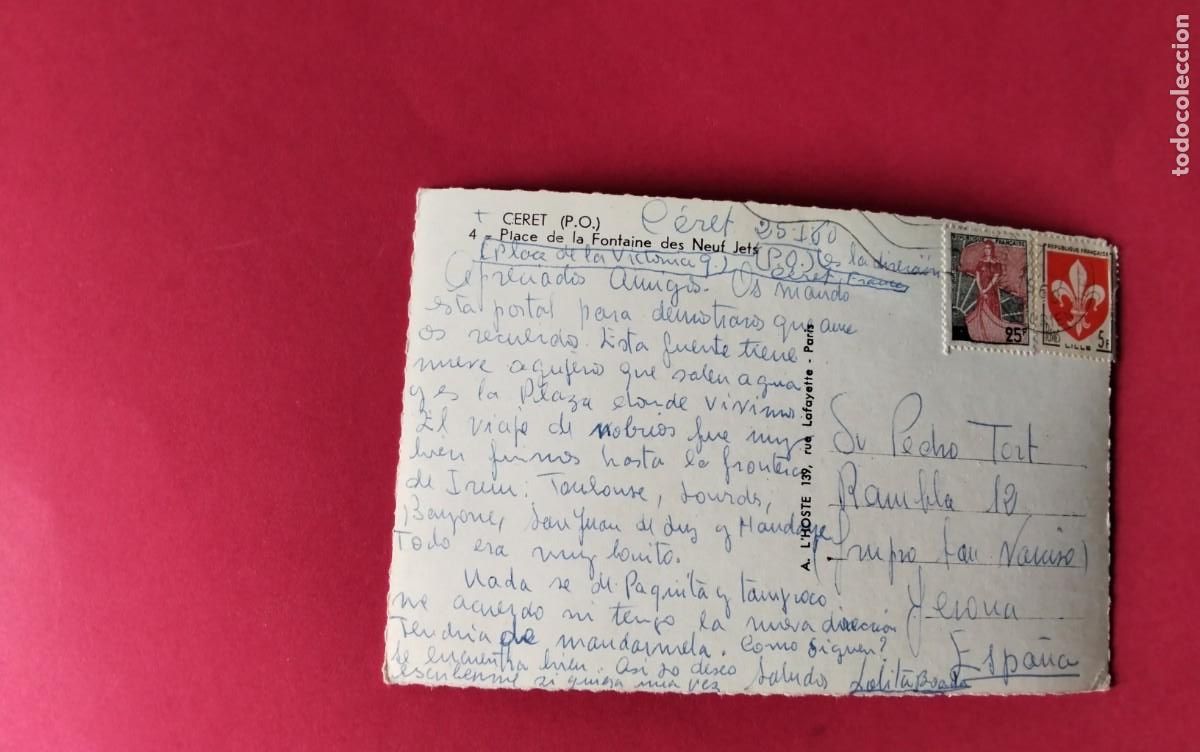 CERET (P.O.)
4 - Place de la Fontaine des Neuf Jets
Céret 25-1-60
(Place de la Victoria 9) (P.O.) es la direción
Céret, France
Apreciados Amigos. Os mando
esta postal para demostraros que aun
os recuerdo. Esta fuente tiene
nueve agujero que salen agua
y es la Plaza donde vivimos
El viaje de nobios fue muy
bien fuimos hasta la frontera
de Irun: Toulouse, Lourds,
Bayone, San Juan de Luz y Handaye
Todo era muy bonito.
Nada se de Paquita y tampoco
me acuerdo ni tengo la nueva dirección
Tendria de mandarmela. Como siguen?
Se encuentra bien. Asi lo deseo
escribenme si quiera una vez Saludos Lolita Boada
A. L'HOSTE 139, rue Lafayette - Paris
Sr Pedro Tort
Rambla 12
(Grupo San Narciso)
Gerona
España
25F
REPUBLIQUE FRANÇAISE
LILLE
5F
todocoleccion